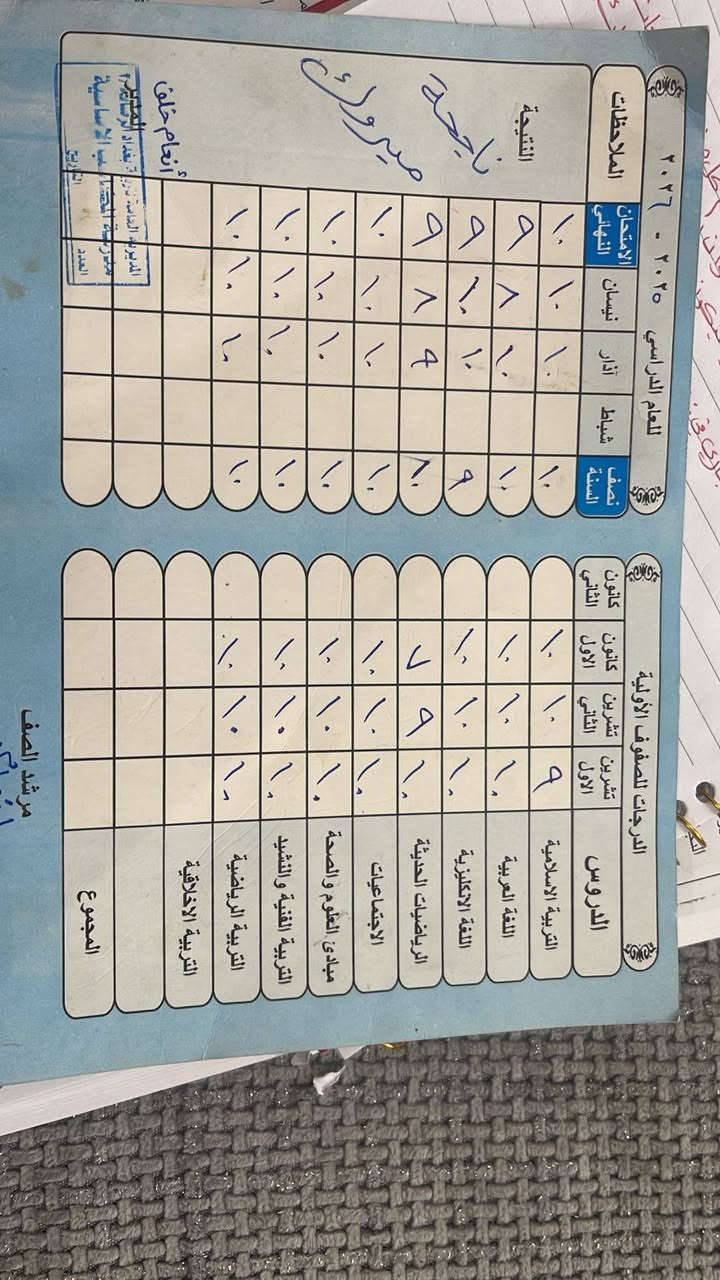 الدرجات للصفوف الأولية للعام الدراسي ٢٠٢٥ - ٢٠٢٦
الدروس تشرين الاول تشرين الثاني كانون الاول كانون الثاني نصف السنة شباط آذار نيسان الامتحان النهائي الملاحظات
التربية الاسلامية ٩ ١٠ ١٠ ١٠ ١٠ ١٠ ١٠
اللغة العربية ١٠ ١٠ ١٠ ١٠ ١٠ ٨ ٩ النتيجة
اللغة الانكليزية ١٠ ١٠ ١٠ ٩ ١٠ ١٠ ٩ ناجحة
الرياضيات الحديثة ١٠ ٩ ٧ ٩ ٨ ٩ مبروك
الاجتماعيات ١٠ ١٠ ١٠ ١٠ ١٠ ١٠ ١٠
مبادئ العلوم والصحة ١٠ ١٠ ١٠ ١٠ ١٠ ١٠ ١٠
التربية الفنية والنشيد ١٠ ١٠ ١٠ ١٠ ١٠ ١٠ ١٠
التربية الرياضية ١٠ ١٠ ١٠ ١٠ ١٠ ١٠ ١٠
التربية الاخلاقية أنعام خلف
المدير
المجموع
العدد
مرشد الصف